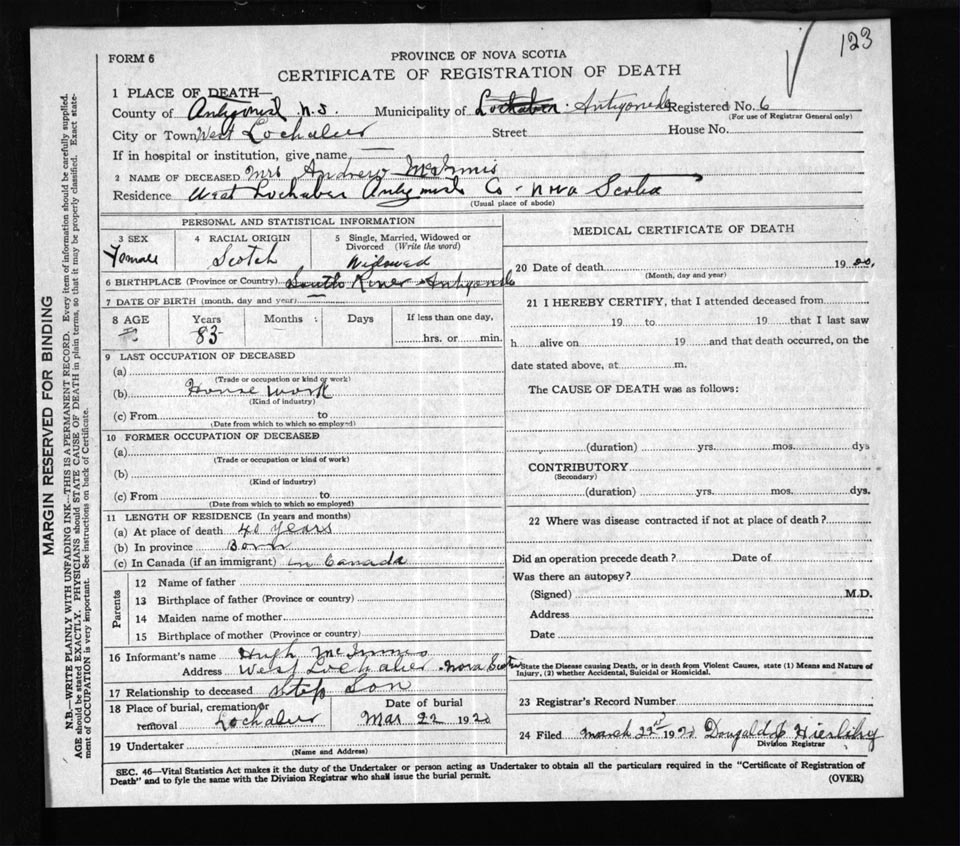 123
FORM 6
PROVINCE OF NOVA SCOTIA
CERTIFICATE OF REGISTRATION OF DEATH
MARGIN RESERVED FOR BINDING
N.B.—WRITE PLAINLY WITH UNFADING INK—THIS IS A PERMANENT RECORD. Every item of information should be carefully supplied.
AGE should be stated EXACTLY. PHYSICIANS should STATE CAUSE OF DEATH in plain terms, so that it may be properly classified. Exact state-
ment of OCCUPATION is very important. See instructions on back of Certificate.
1 PLACE OF DEATH—
County of N.S. Municipality of Lochaber. Antigonish Registered No. 6
(For use of Registrar General only)
City or Town West Lochaber Street House No.
If in hospital or institution, give name
2 NAME OF DECEASED Mrs Andrew McInnis
Residence West Lochaber Co - Nova Scotia
(Usual place of abode)
PERSONAL AND STATISTICAL INFORMATION
3 SEX
Female
4 RACIAL ORIGIN
Scotch
5 Single, Married, Widowed or
Divorced (Write the word)
Widowed
6 BIRTHPLACE (Province or Country) South River
7 DATE OF BIRTH (month, day and year)
8 AGE Years Months Days If less than one day,
83 hrs. or min.
9 LAST OCCUPATION OF DECEASED
(a)
(Trade or occupation or kind or work)
(b) House work
(Kind of industry)
(c) From to
(Date from which to which so employed)
10 FORMER OCCUPATION OF DECEASED
(a)
(Trade or occupation or kind of work)
(b)
(Kind of industry)
(c) From to
(Date from which to which so employed)
11 LENGTH OF RESIDENCE (In years and months)
(a) At place of death 40 years
(b) In province Born
(c) In Canada (if an immigrant) in Canada
Parents
12 Name of father
13 Birthplace of father (Province or country)
14 Maiden name of mother
15 Birthplace of mother (Province or country)
16 Informant's name Hugh McInnis
Address West Lochaber Nova Scotia
17 Relationship to deceased Step Son
18 Place of burial, cremation or
removal Lochaber
Date of burial
Mar. 22 1920
19 Undertaker
(Name and Address)
MEDICAL CERTIFICATE OF DEATH
20 Date of death 1920.
(Month, day and year)
21 I HEREBY CERTIFY, that I attended deceased from
19 to 19 that I last saw
h alive on 19 and that death occurred, on the
date stated above, at m.
The CAUSE OF DEATH was as follows:
(duration) yrs. mos. dys
CONTRIBUTORY
(Secondary)
(duration) yrs. mos. dys.
22 Where was disease contracted if not at place of death?
Did an operation precede death? Date of
Was there an autopsy?
(Signed) M.D.
Address
Date
State the Disease causing Death, or in death from Violent Causes, state (1) Means and Nature of
Injury, (2) whether Accidental, Suicidal or Homicidal.
23 Registrar's Record Number
24 Filed March 22nd 1920 Dougald
Division Registrar
SEC. 46—Vital Statistics Act makes it the duty of the Undertaker or person acting as Undertaker to obtain all the particulars required in the "Certificate of Registration of
Death" and to fyle the same with the Division Registrar who shall issue the burial permit.
(OVER)